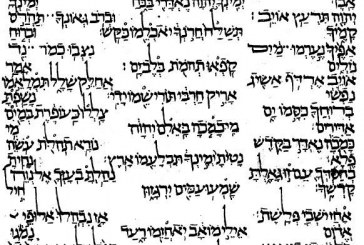 ימינך יהוה נאדרי בכח ימינך
יהוה תרעץ אויב וברב גאונך תהרס
קמיך תשלח חרנך יאכלמו כקש וברוח
אפיך נערמו מים נצבו כמו נד
נזלים קפאו תהמת בלב ים אמר
אויב ארדף אשיג אחלק שלל תמלאמו
נפשי אריק חרבי תורישמו ידי נשפת
ברוחך כסמו ים צללו כעופרת במים
אדירים מי כמכה באלם יהוה מי
כמכה נאדר בקדש נורא תהלת עשה
פלא נטית ימינך תבלעמו ארץ נחית
בחסדך עם זו גאלת נהלת בעזך אל נוה
קדשך שמעו עמים ירגזון חיל
אחז ישבי פלשת אז נבהלו אלופי
אדום אילי מואב יאחזמו רעד נמגו